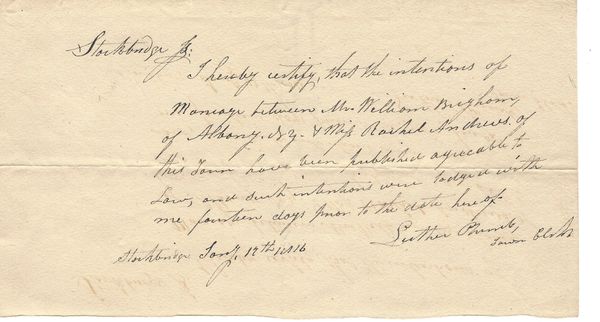 Stockbridge Js:
I hereby certify, that the intentions of
Marriage between Mr. William Brigham,
of Albany. N.Y. & Miss Rachel Andrews, of
this Town have been published agreeable to
Law, and such intentions were lodged with
me fourteen days prior to the date here of.
Luther Plumb,
Town Clerk
Stockbridge Jany. 19th 1816